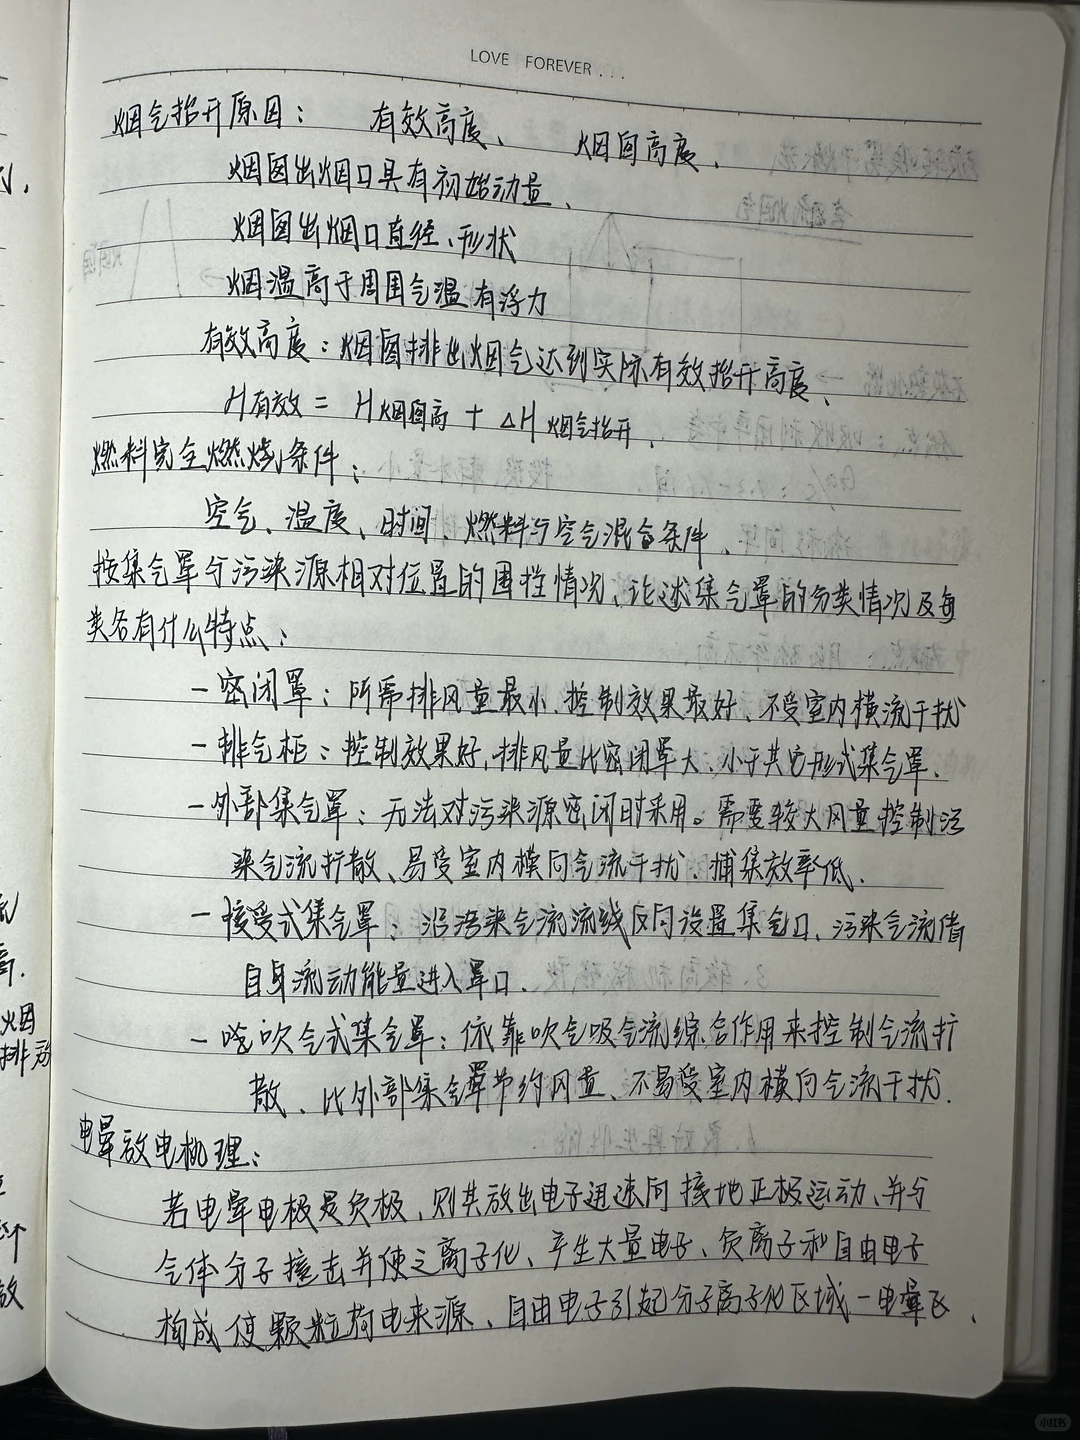 LOVE FOREVER...
烟气抬升原因： 有效高度、 烟囱高度、
烟囱出烟口具有初始动量、
烟囱出烟口直径、形状
烟温高于周围气温有浮力
有效高度：烟囱排出烟气达到实际有效抬升高度、
H有效 = H烟囱高 + ΔH 烟气抬升.
燃料完全燃烧条件：
空气、温度、时间、燃料与空气混合条件、
按集气罩与污染源相对位置的围挡情况、论述集气罩的分类情况及每
类各有什么特点：
- 密闭罩：所需排风量最小、控制效果最好、不受室内横流干扰
- 排气柜：控制效果好,排风量比密闭罩大、小于其它形式集气罩.
- 外部集气罩：无法对污染源密闭时采用。需要较大风量控制污
染气流扩散、易受室内横向气流干扰、捕集效率低.
- 接受式集气罩：沿污染气流流线反向设置集气口、污染气流借
自身流动能量进入罩口.
- 吹吹气式集气罩：依靠吹气吸气流综合作用来控制气流扩
散、比外部集气罩节约风量、不易受室内横向气流干扰.
电晕放电机理：
若电晕电极是负极、则其放出电子迅速向接地正极运动、并与
气体分子撞击并使之离子化、产生大量电子、负离子和自由电子
构成使颗粒荷电来源、自由电子引起分子离子化区域-电晕区、
火囱
排放
个
放
高.